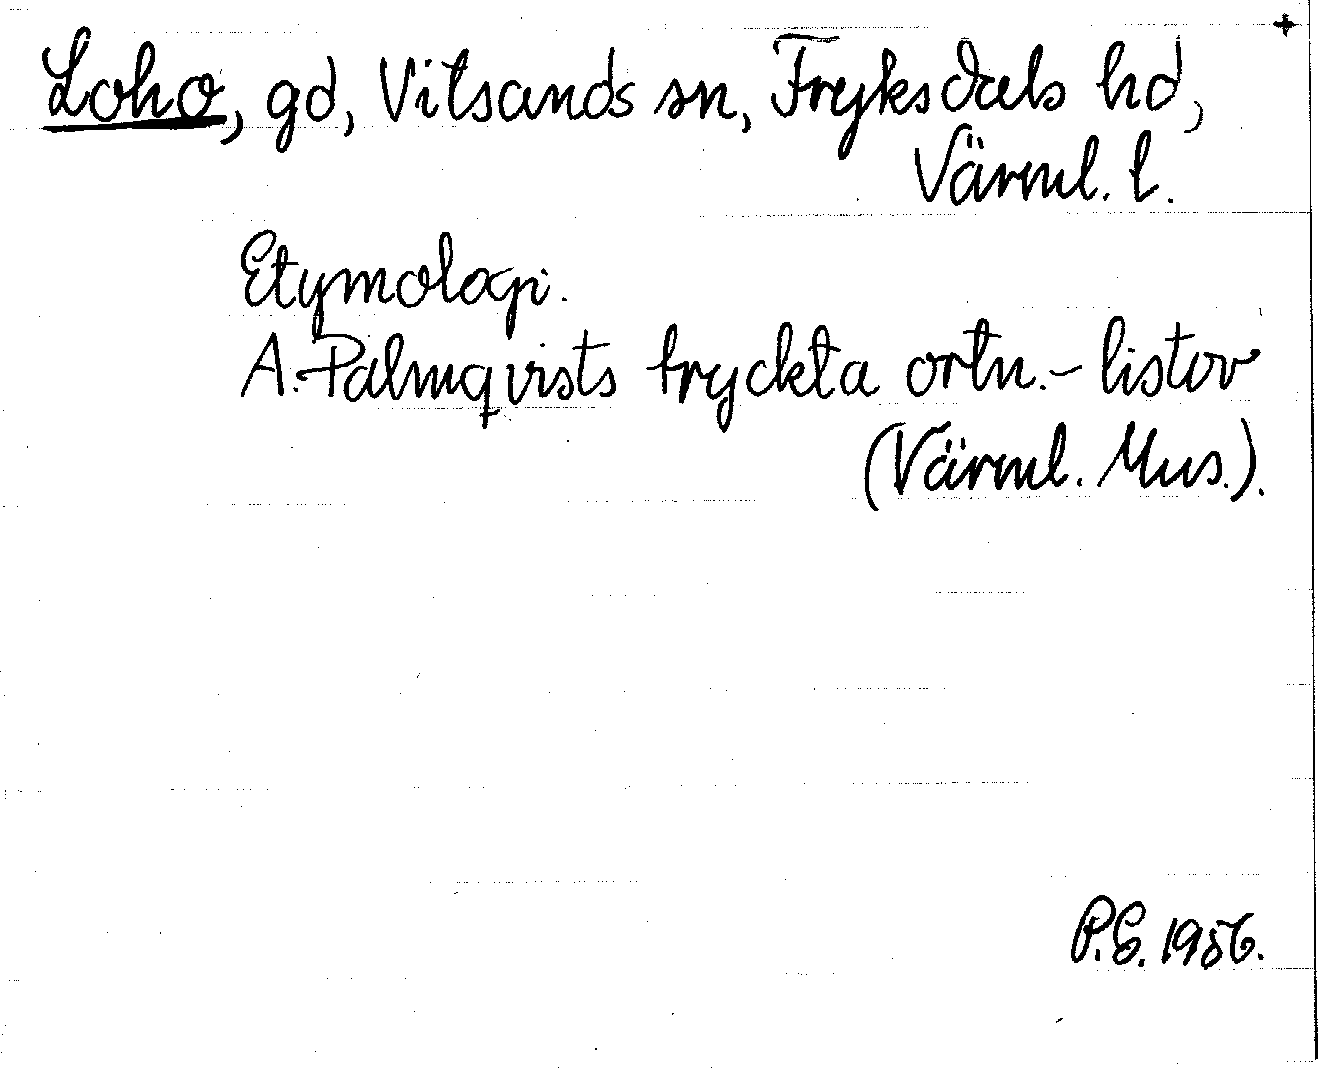 +
Loho, gd, Vitsands sn, Fryksdals hd,
Värml. l.
Etymologi.
A. Palmqvists tryckta ortn.-listor
(Värml. Mus.).
P.E. 1956.